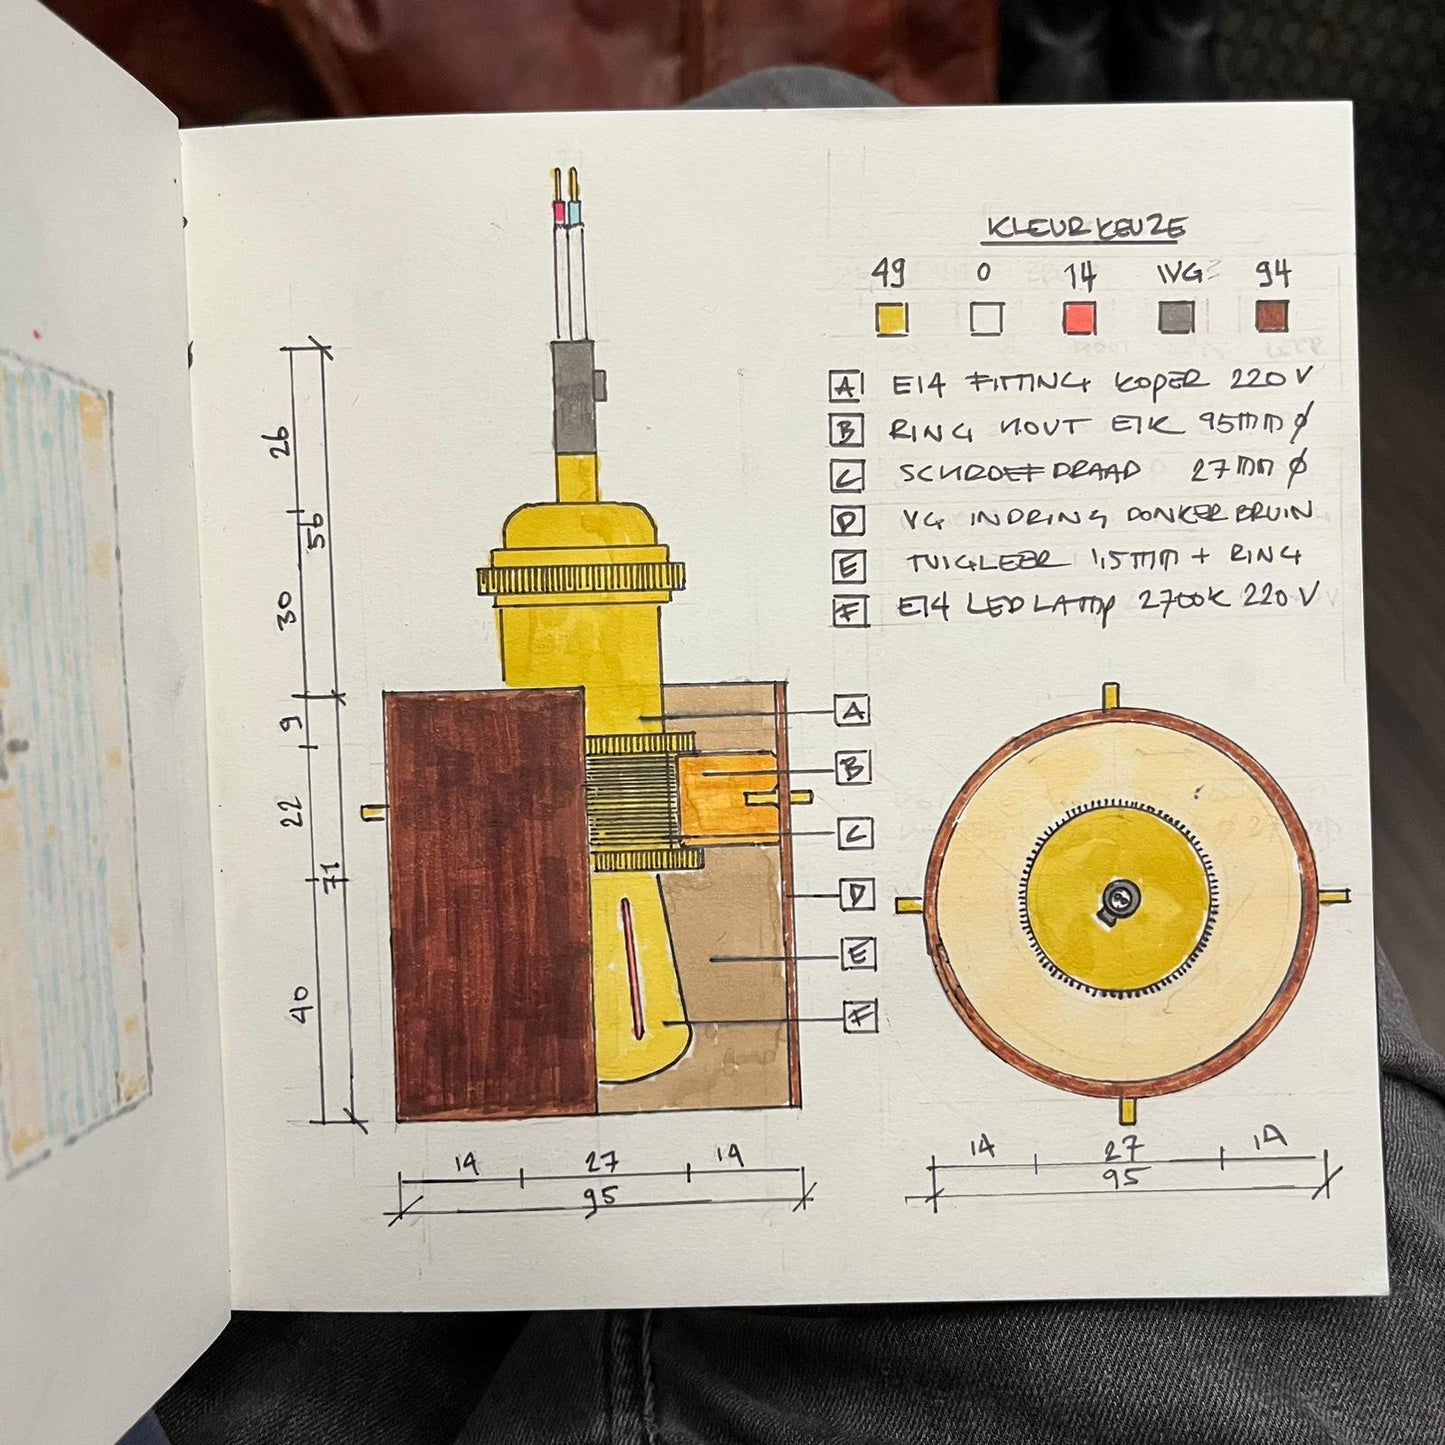 KLEURKEUZE
49 0 14 WG2 94
A E14 FITTING KOPER 220V
B RING HOUT EIK 95mm ø
C SCHROEFDRAAD 27mm ø
D VG INDRING DONKERBRUIN
E TUIGLEER 1,5mm + RING
F E14 LEDLAMP 2700K 220V
26
56
30
9
22
71
40
A
B
C
D
E
F
14 27 14
95
14 27 14
95